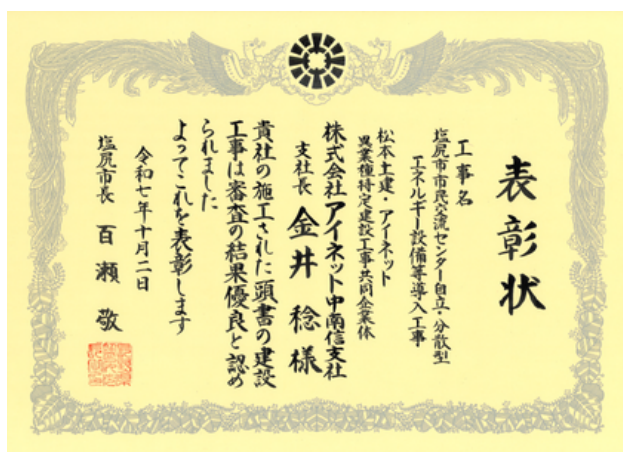 表彰状
工事名
塩尻市市民交流センター自立・分散型
エネルギー設備等導入工事
松本土建・アイネット
異業種特定建設工事共同企業体
株式会社アイネット中南信支社
支社長 金井 稔 様
貴社の施工された頭書の建設
工事は審査の結果優良と認め
られました
よってこれを表彰します
令和七年十月二日
塩尻市長 百瀬 敬